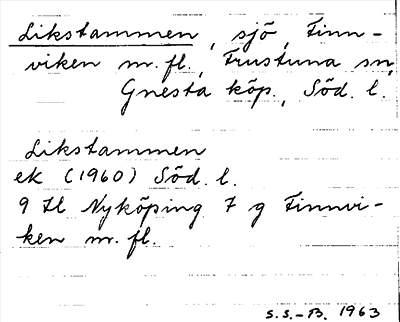 Likstammen, sjö, Finn-
viken m.fl., Frustuna sn,
Gnesta köp., Söd. l.
Likstammen
ek (1960) Söd. l.
9 H1 Nyköping 7 g Finnvi-
ken m. fl.
S.S.-B. 1963